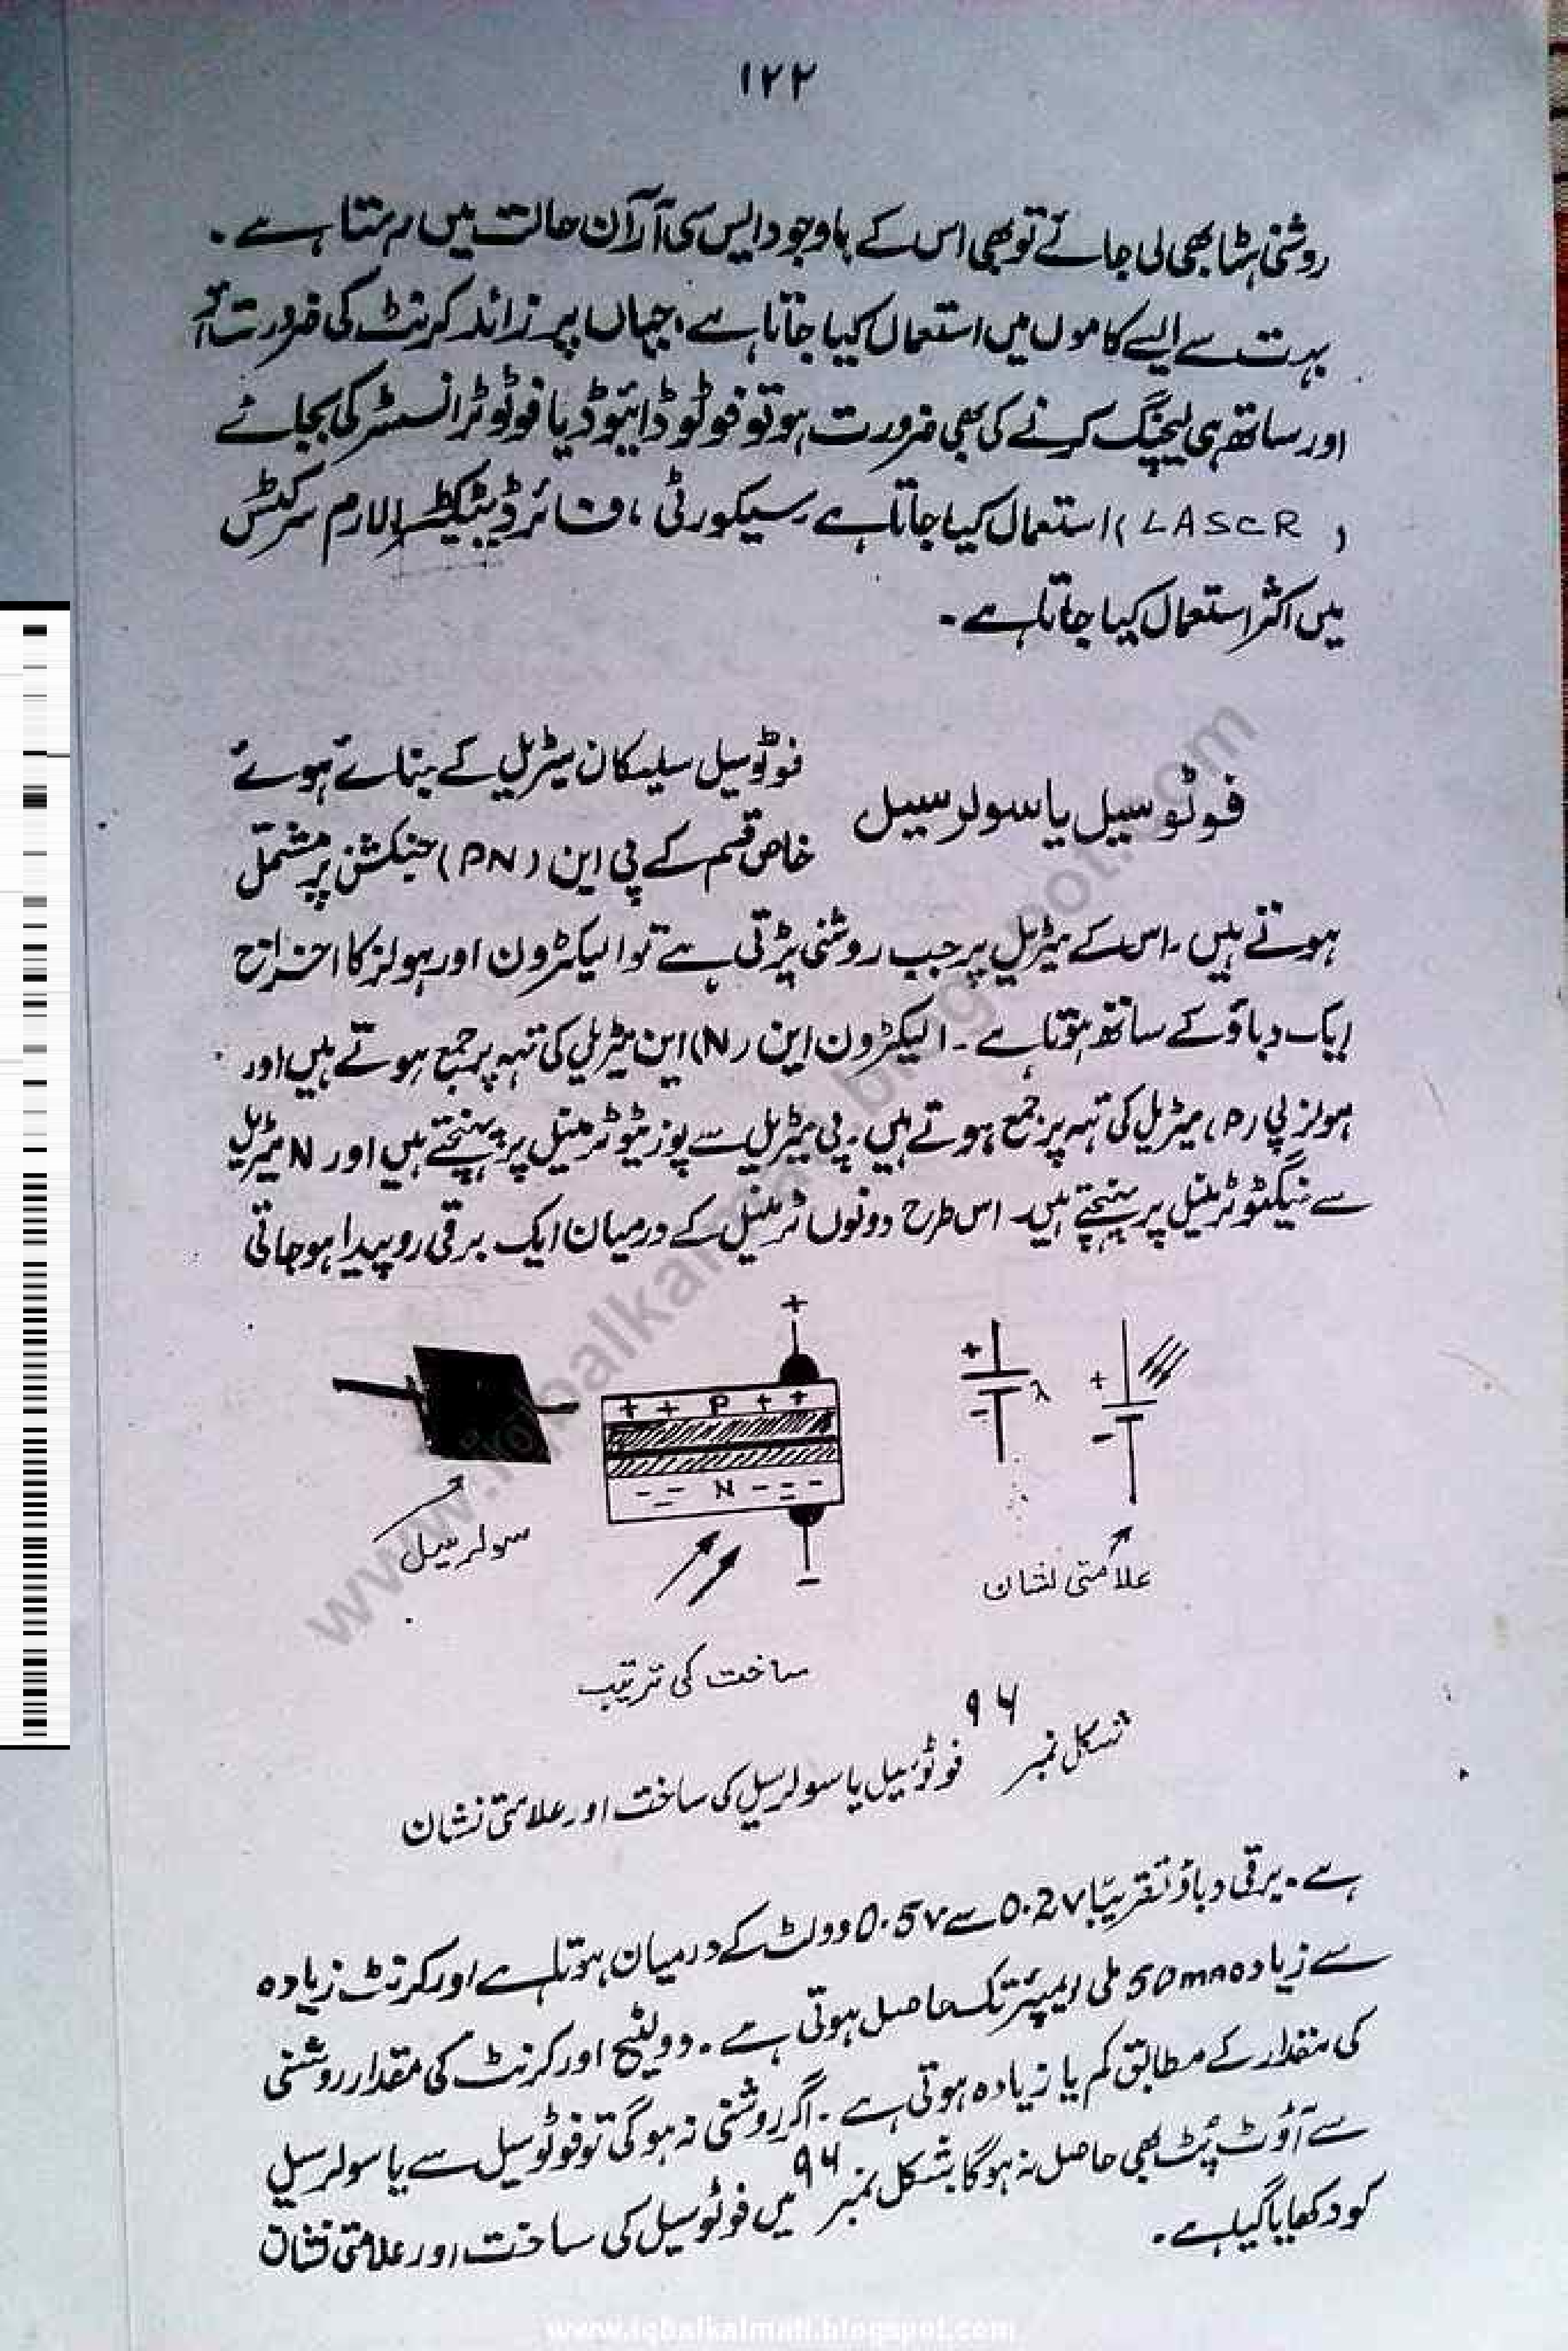 ۱۲۲
روشنی ہٹا بھی لی جائے تو بھی اس کے باوجود ایس سی آر آن حالت میں رہتا ہے۔
بہت سے ایسے کاموں میں استعمال کیا جاتا ہے، جہاں پر زائد کرنٹ کی ضرورت
اور ساتھ ہی لیچنگ کرنے کی بھی ضرورت ہو تو فوٹو ڈائیوڈ یا فوٹو ٹرانسسٹر کی بجائے
(LASCR) استعمال کیا جاتا ہے۔ سیکورٹی، فائر ڈیٹیکٹر الارم سرکٹس
میں اکثر استعمال کیا جاتا ہے۔
فوٹو سیل یا سولر سیل
فوٹو سیل سلیکان میٹریل کے بنائے ہوئے
خاص قسم کے پی این (PN) جنکشن پر مشتمل
ہوتے ہیں۔ اس کے میٹریل پر جب روشنی پڑتی ہے تو الیکٹرون اور ہولز کا اخراج
ایک دباؤ کے ساتھ ہوتا ہے۔ الیکٹرون این (N) این میٹریل کی تہہ پر جمع ہوتے ہیں اور
ہولز پی (P) میٹریل کی تہہ پر جمع ہوتے ہیں۔ پی میٹریل سے پوزیٹو ٹرمینل پر پہنچتے ہیں اور N میٹریل
سے نیگٹو ٹرمینل پر پہنچتے ہیں۔ اس طرح دونوں ٹرمینل کے درمیان ایک برقی رو پیدا ہو جاتی
+
+ + P + +
-- N ---
-
+
-
λ
+
-
سولر سیل
علامتی نشان
ساخت کی ترتیب
شکل نمبر ۹۶ فوٹو سیل یا سولر سیل کی ساخت اور علامتی نشان
ہے۔ برقی دباؤ تقریباً 0.2v سے 0.5v وولٹ کے درمیان ہوتا ہے اور کرنٹ زیادہ
سے زیادہ ملی ایمپئر تک حاصل ہوتی ہے۔ وولٹیج اور کرنٹ کی مقدار روشنی
کی مقدار کے مطابق کم یا زیادہ ہوتی ہے۔ اگر روشنی نہ ہو گی تو فوٹو سیل سے یا سولر سیل
سے آؤٹ پٹ بھی حاصل نہ ہو گا۔ شکل نمبر ۹۶ میں فوٹو سیل کی ساخت اور علامتی نشان
کو دکھایا گیا ہے۔
www.iqbalkalmati.blogspot.com
www.iqbalkalmati.blogspot.com